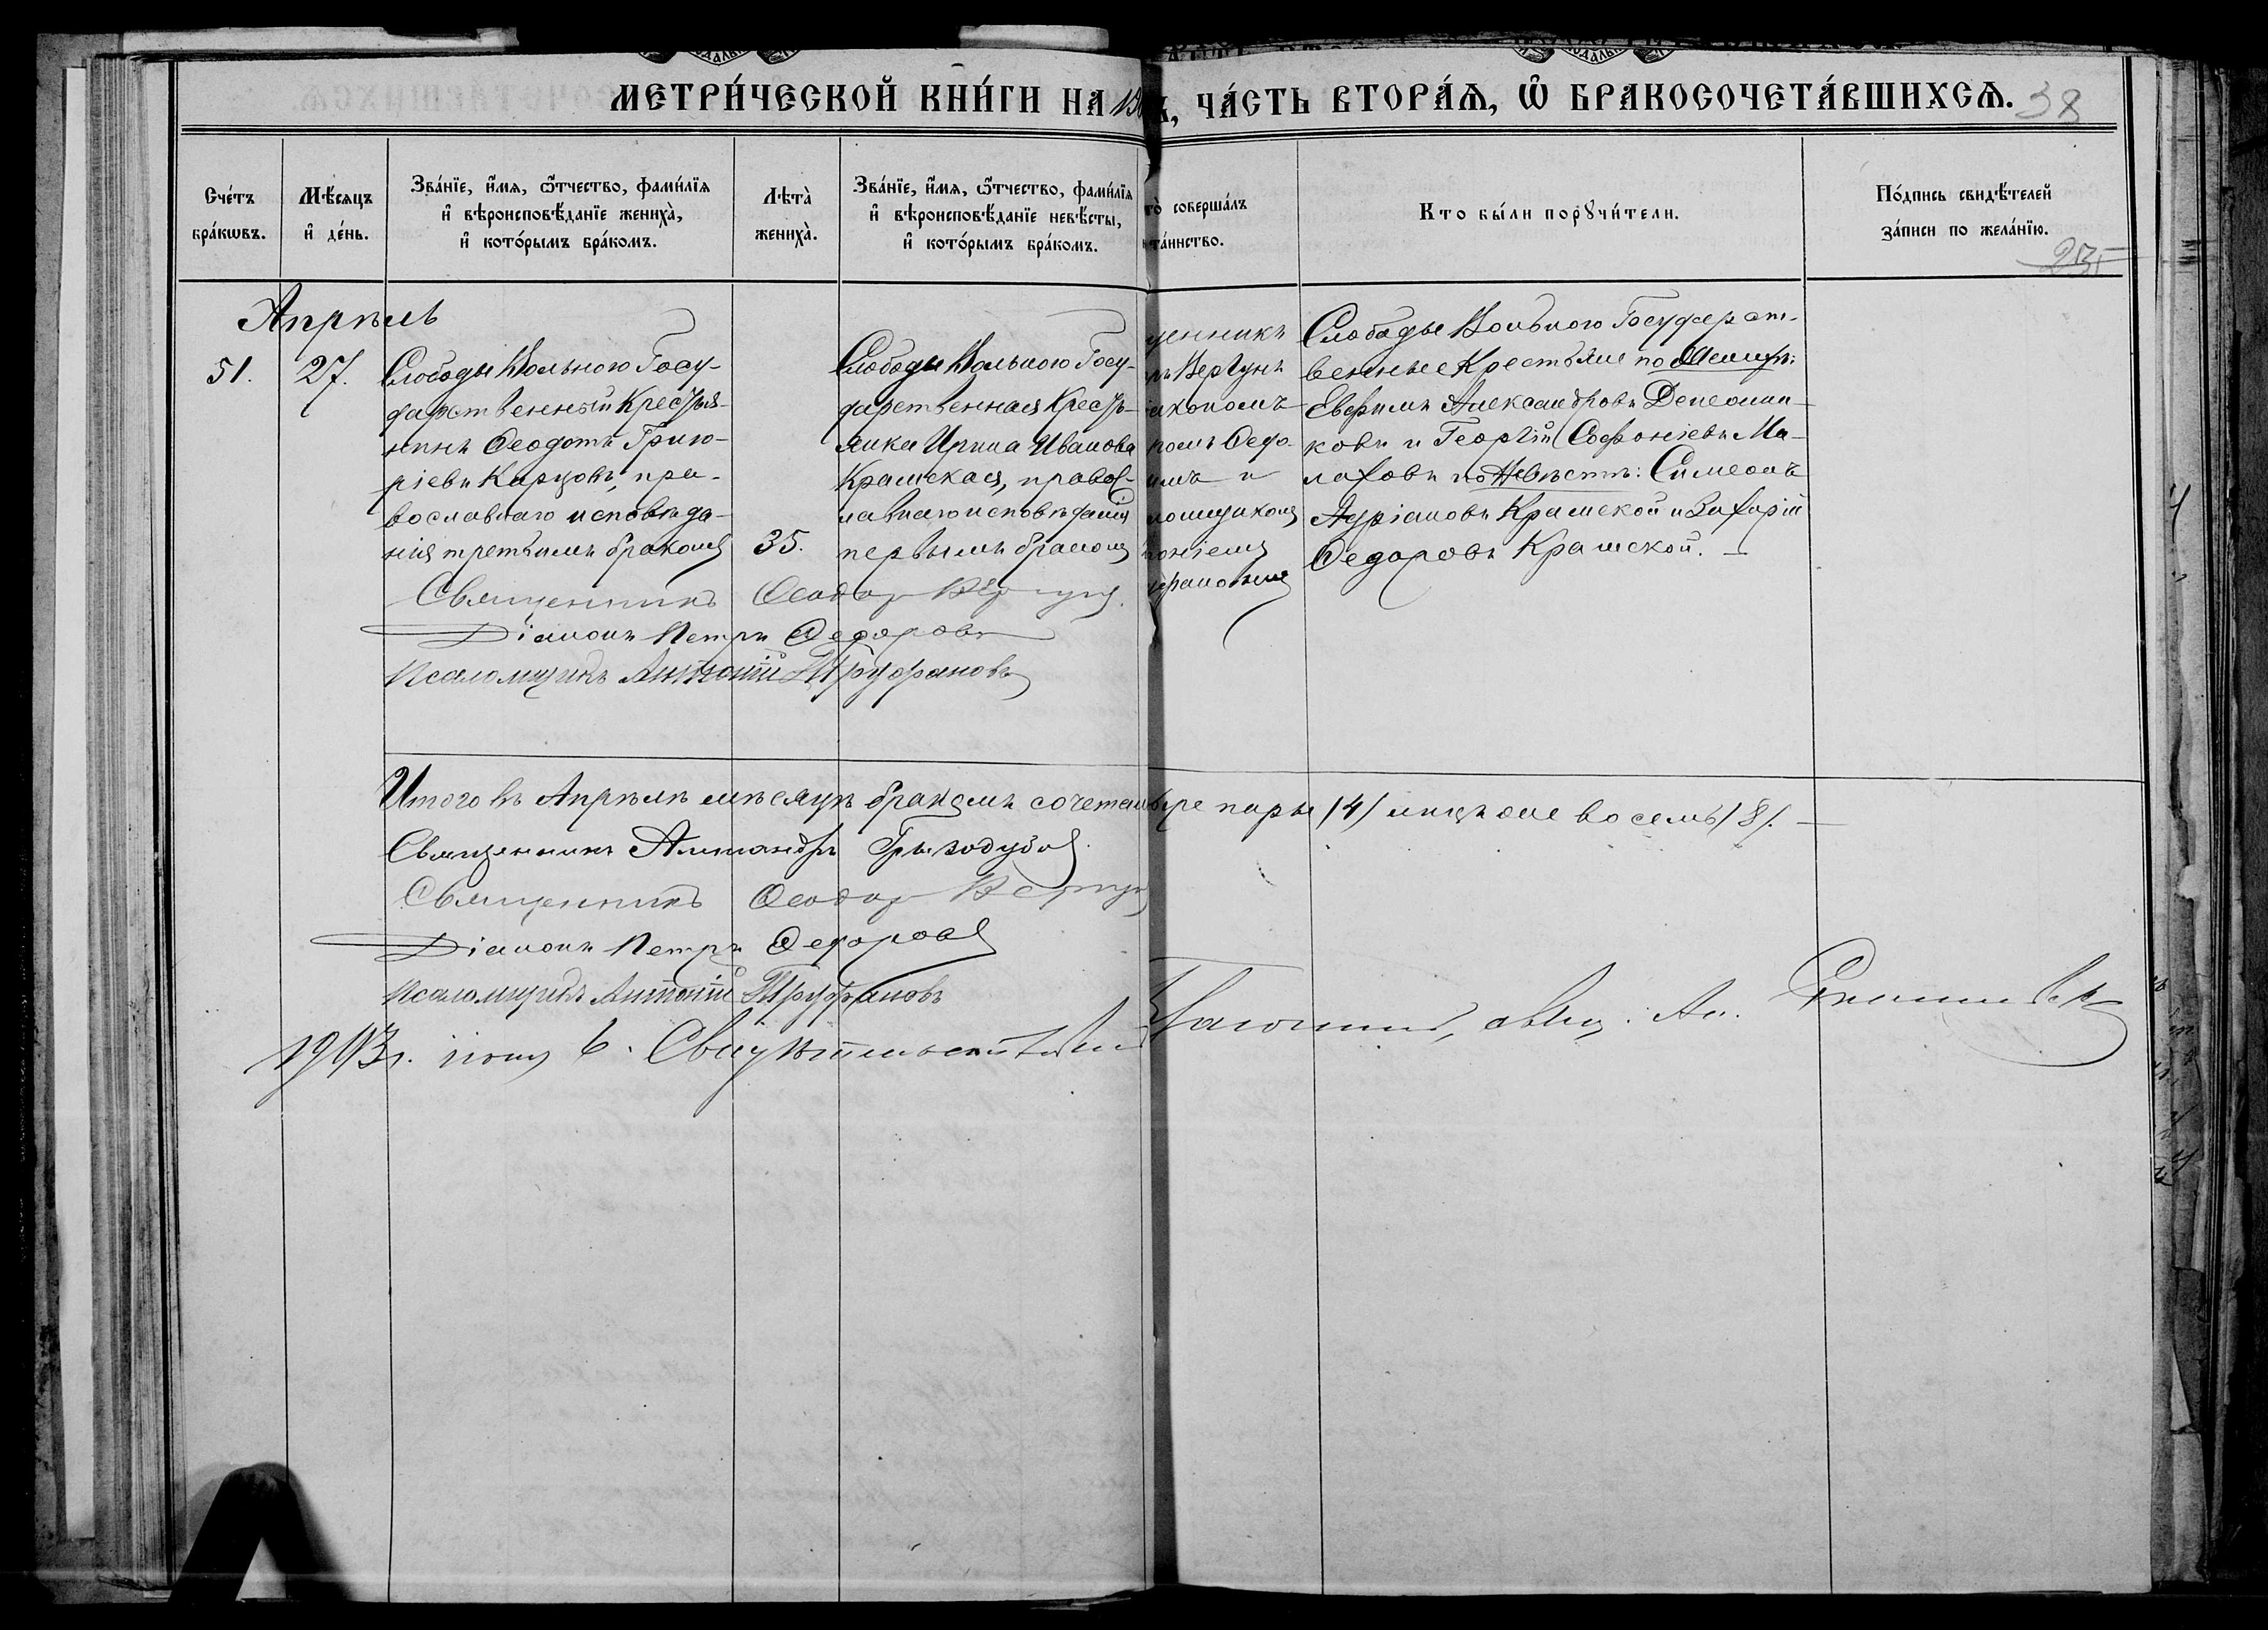 МЕТРИ́ЧЕСКОЙ КНИ́ГИ НА
ЧА́СТЬ ВТОРА́Ѧ, Ѡ҆ БРАКОСОЧЕТА́ВШИХСѦ.
38
Сче́тъ бра́кѡвъ.
Мѣ́сяцъ и҆ де́нь.
Зва́нїе, и҆́мя, ѻ҆́тчество, фами́лїя
и҆ вѣроисповѣ́данїе жениха̀,
и҆ кото́рымъ бра́комъ.
Лѣта̀ жениха̀.
Зва́нїе, и҆́мя, ѻ҆́тчество, фами́лїя
и҆ вѣроисповѣ́данїе невѣ́сты,
и҆ кото́рымъ бра́комъ.
соверша́лъ
та́инство.
Кто бы́ли порꙋчи́тели.
По́дпись свидѣ́телей
за́писи по жела́нїю.
Апрѣль
51.
27.
Слободы Вольного Госу-
дарственный Крестья-
нинъ Ѳеодотъ Григо-
ріевъ Карповъ, пра-
вославнаго исповѣда-
нія третьимъ бракомъ
35.
Слободы Вольного Госу-
дарственная Кресть-
янка Ирина Иванова
Крамская, правос-
лавнаго исповѣданія
первымъ бракомъ
щенникъ
ръ Вергунъ
іакономъ
ромъ Ѳедо-
ымъ и
ломщикомъ
тоніемъ
фановымъ
Слободы Вольного Государст-
венные Крестьяне по Женихѣ:
Евфимъ Александровъ
ковъ и Георгій Софоніевъ Ма-
лаховъ по Невѣстѣ: Симеонъ
Адріановъ Крамской и Захарій
Ѳедоровъ Крамской.
Священникъ Ѳеодоръ Вергунъ.
Діаконъ Петръ Ѳедоровъ
Псаломщикъ Антоній Труфановъ
Итого въ Апрѣлѣ мѣсяцѣ бракомъ сочетаны
ре пары /4/ лицъ же восемь /8/.
Священникъ Александръ Грызодубовъ
Священникъ Ѳеодоръ Вергунъ
Діаконъ Петръ Ѳедоровъ
Псаломщикъ Антоній Труфановъ
1903 г. 6. Свидѣтельствовалъ